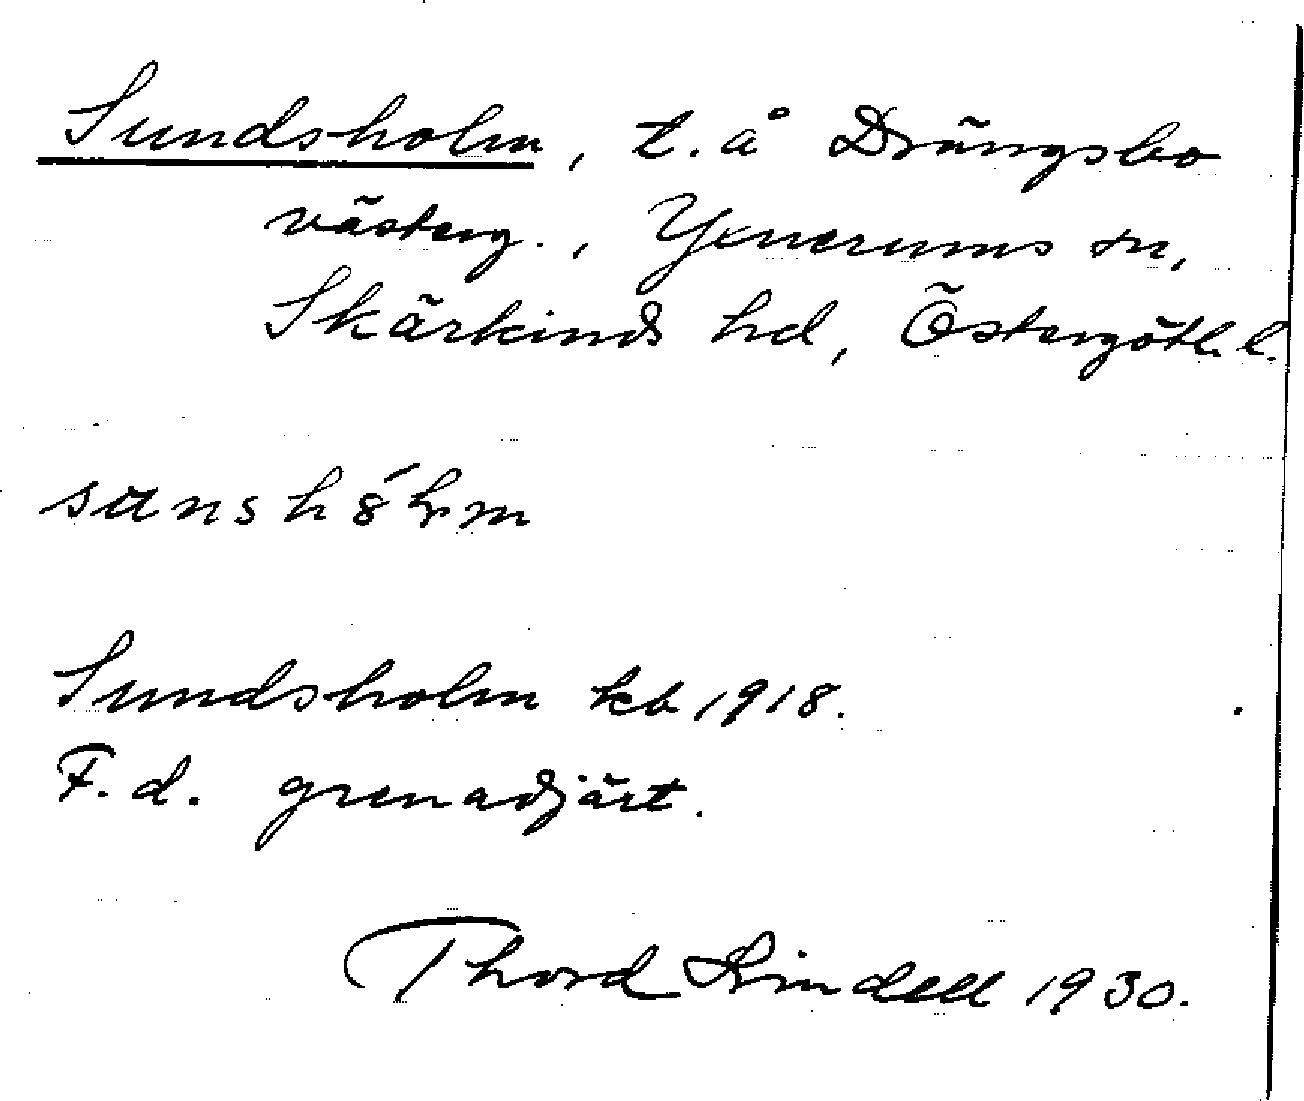 Sundsholm, t. å Drängsbo
västerg., Yxnerums sn,
Skärkinds hd, Östergötl. l.
Sundsholm kb 1918.
F.d. grenadjärt.
Thord Lindell 1930.